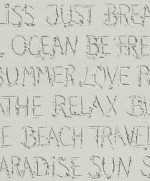 LISS JUST BREA
L OCEAN BE FRE
SUMMER LOVE P
ATHE RELAX B
E BEACH TRAVEL
PARADISE SUN S